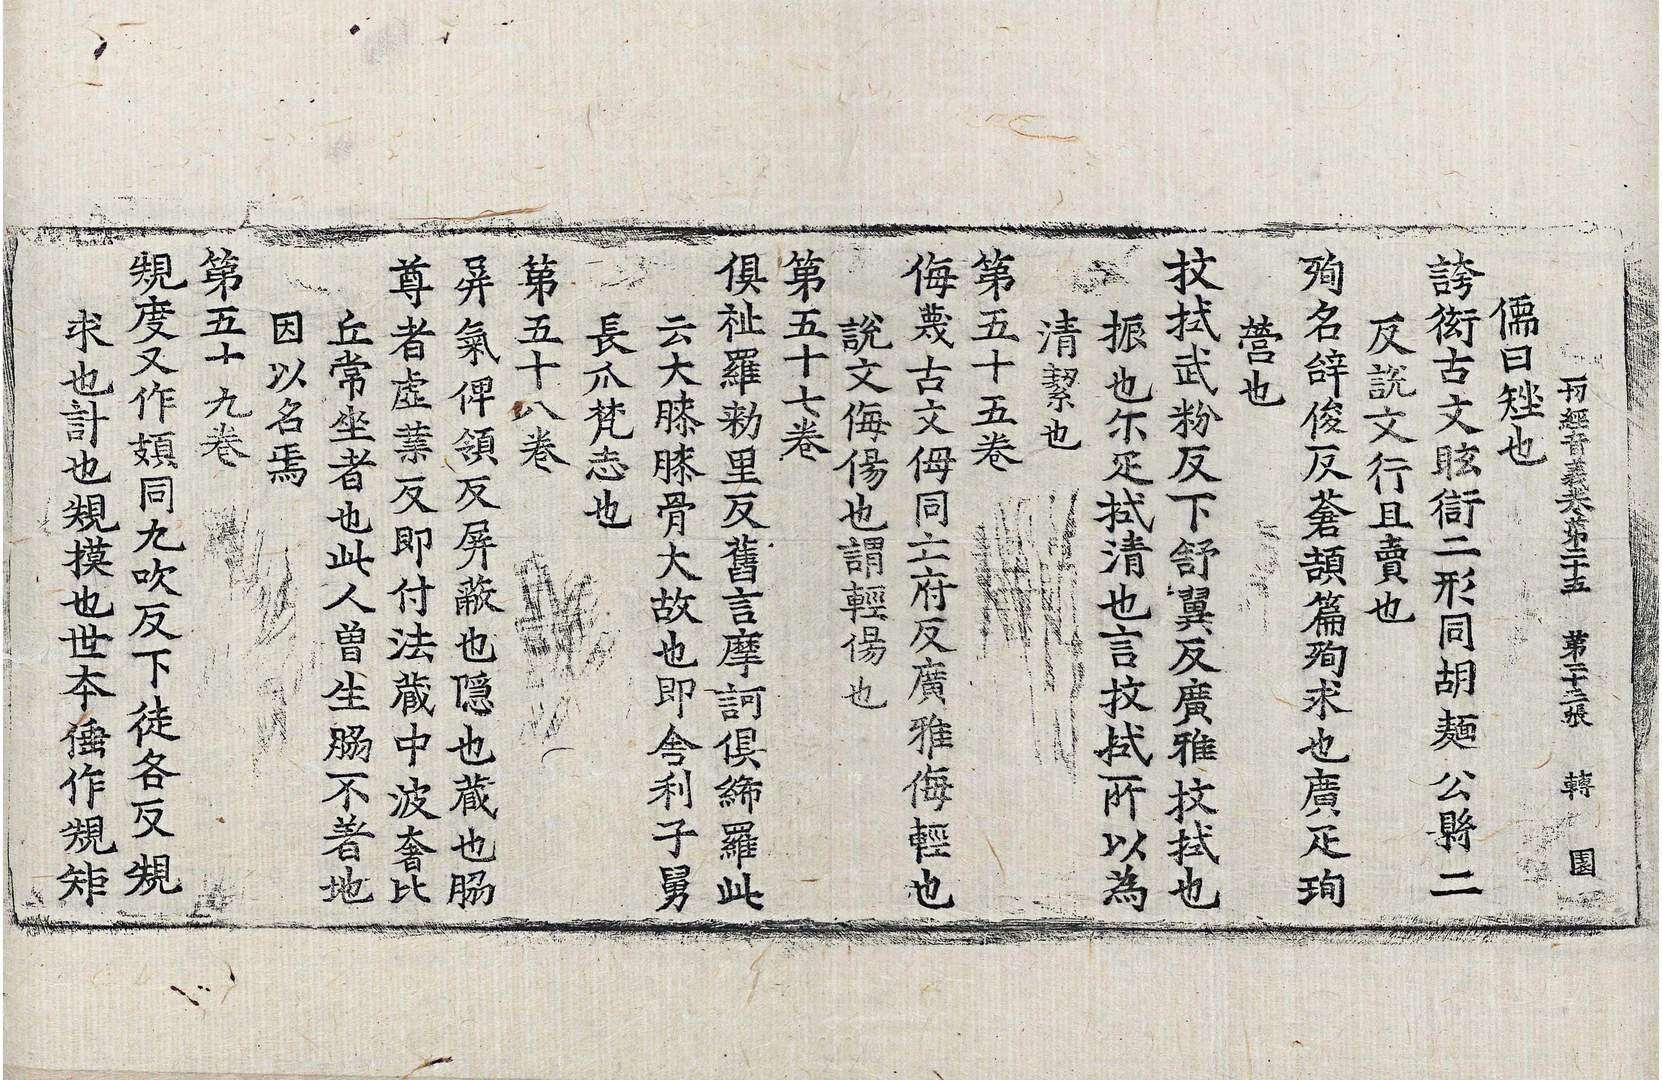 一切經音義卷第二十五 第二十三張 轉 园
儒曰矬也
誇衒古文眩衙二形同胡麵公縣二
反說文行且賣也
殉名辝俊反蒼頡篇殉求也廣疋殉
營也
抆拭武粉反下舒翼反廣雅抆拭也
振也尒疋拭清也言抆拭所以為
清潔也
第五十五卷
侮蔑古文㑄同亡府反廣雅侮輕也
說文侮傷也謂輕傷也
第五十七卷
俱祉羅勑里反舊言摩訶俱絺羅此
云大膝膝骨大故也即舎利子舅
長爪梵志也
第五十八卷
屏氣俾領反屏蔽也隱也蔵也脇
尊者虛業反即付法蔵中波奢比
丘常坐者也此人曾生脇不著地
因以名焉
第五十九卷
規度又作䂓同九吹反下徒各反規
求也計也規摸也世夲倕作規矩